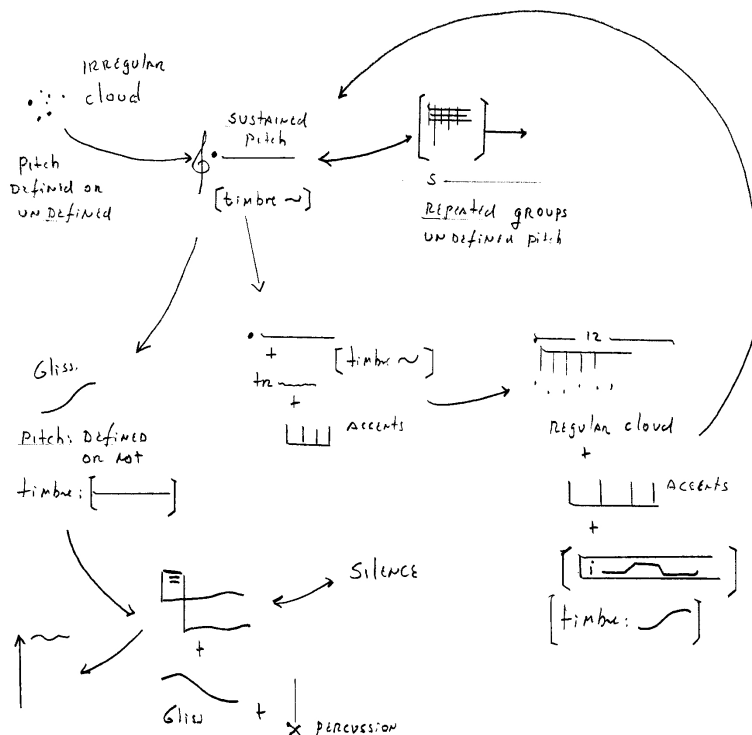 IRREGULAR
cloud
Pitch
DEFINED or
UNDEFINED
SUSTAINED
Pitch
[timbre ~]
5
REPEATED GROUPS
UNDEFINED Pitch
Gliss.
Pitch: DEFINED
OR NOT
timbre: [ ]
+
[timbre ~]
tr
+
ACCENTS
12
REGULAR cloud
+
ACCENTS
+
i
[timbre: ]
SILENCE
+
Gliss
+
PERCUSSION